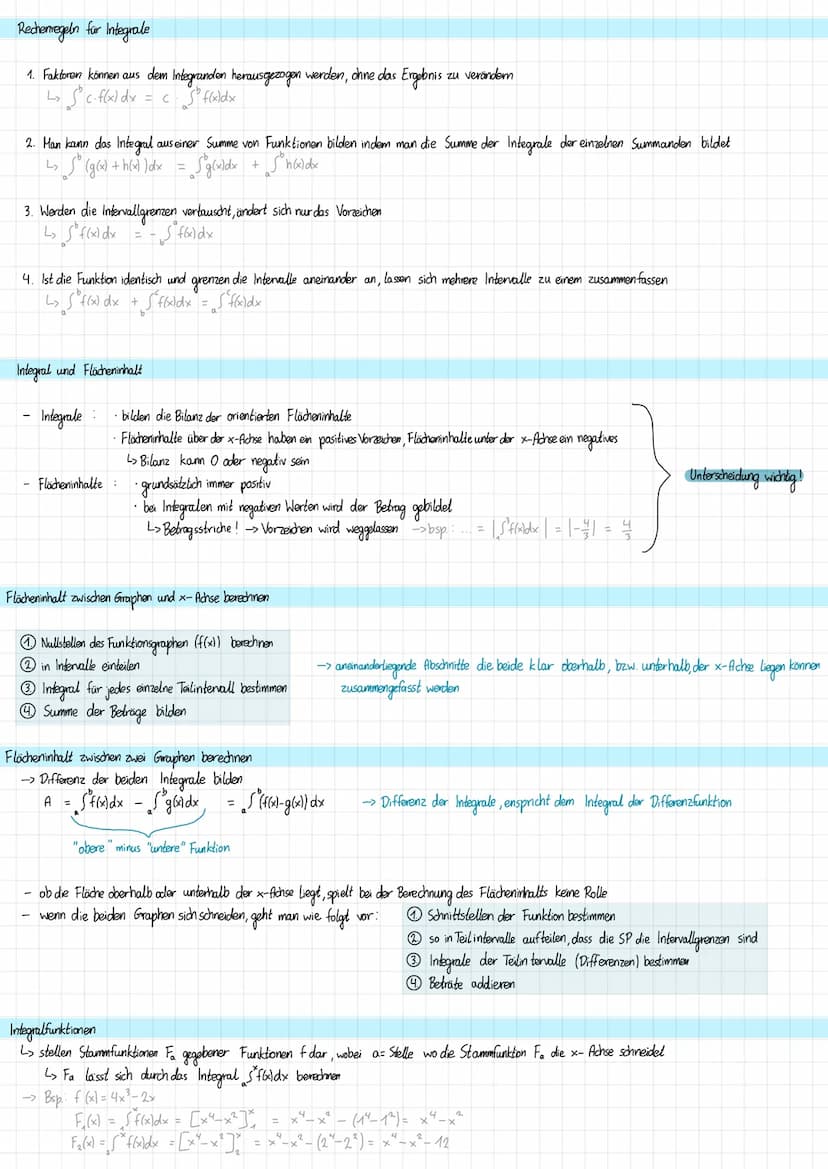 Rechenregeln für Integrale
1. Faktoren können aus dem Integranden herausgezogen werden, ohne das Ergebnis zu verändern
↳ ₐ∫ᵇ c·f(x) dx = c · ₐ∫ᵇ f(x)dx
2. Man kann das Integral aus einer Summe von Funktionen bilden indem man die Summe der Integrale der einzelnen Summanden bildet
↳ ₐ∫ᵇ (g(x) + h(x))dx = ₐ∫ᵇ g(x)dx + ₐ∫ᵇ h(x)dx
3. Werden die Intervallgrenzen vertauscht, ändert sich nur das Vorzeichen
↳ ₐ∫ᵇ f(x) dx = - b∫ᵃ f(x)dx
4. Ist die Funktion identisch und grenzen die Intervalle aneinander an, lassen sich mehrere Intervalle zu einem zusammenfassen
↳ ₐ∫ᵇ f(x) dx + b∫ᶜ f(x)dx = ₐ∫ᶜ f(x)dx
Integral und Flächeninhalt
- Integrale : · bilden die Bilanz der orientierten Flächeninhalte
· Flächeninhalte über der x-Achse haben ein positives Vorzeichen, Flächeninhalte unter der x-Achse ein negatives
↳ Bilanz kann 0 oder negativ sein
Unterscheidung wichtig!
- Flächeninhalte : · grundsätzlich immer positiv
· bei Integralen mit negativen Werten wird der Betrag gebildet
↳ Betragsstriche! → Vorzeichen wird weggelassen → bsp.: ... = |₁∫³ f(x)dx| = |-4/3| = 4/3
Flächeninhalt zwischen Graphen und x-Achse berechnen
① Nullstellen des Funktionsgraphen (f(x)) berechnen
② in Intervalle einteilen → aneinanderliegende Abschnitte die beide klar oberhalb, bzw. unterhalb, der x-Achse liegen können
③ Integral für jedes einzelne Teilintervall bestimmen zusammengefasst werden
④ Summe der Beträge bilden
Flächeninhalt zwischen zwei Graphen berechnen
→ Differenz der beiden Integrale bilden
A = ₐ∫ᵇ f(x)dx - ₐ∫ᵇ g(x)dx = ₐ∫ᵇ (f(x)-g(x)) dx → Differenz der Integrale, enspricht dem Integral der Differenzfunktion
"obere" minus "untere" Funktion
- ob die Fläche oberhalb oder unterhalb der x-Achse liegt, spielt bei der Berechnung des Flächeninhalts keine Rolle
- wenn die beiden Graphen sich schneiden, geht man wie folgt vor: ① Schnittstellen der Funktion bestimmen
② so in Teilintervalle aufteilen, dass die SP die Intervallgrenzen sind
③ Integrale der Teilintervalle (Differenzen) bestimmen
④ Beträte addieren
Integralfunktionen
↳ stellen Stammfunktionen Fₐ gegebener Funktonen f dar, wobei a = Stelle wo die Stammfunkton Fₐ die x-Achse schneidet
↳ Fa lässt sich durch das Integral ₐ∫ˣ f(x)dx berechnen
→ Bsp: f(x) = 4x³-2x
F₁(x) = ₁∫ˣ f(x)dx = [x⁴-x²]₁ˣ = x⁴-x² - (1⁴-1²) = x⁴-x²
F₂(x) = ₂∫ˣ f(x)dx = [x⁴-x²]₂ˣ = x⁴-x²-(2⁴-2²) = x⁴-x²-12